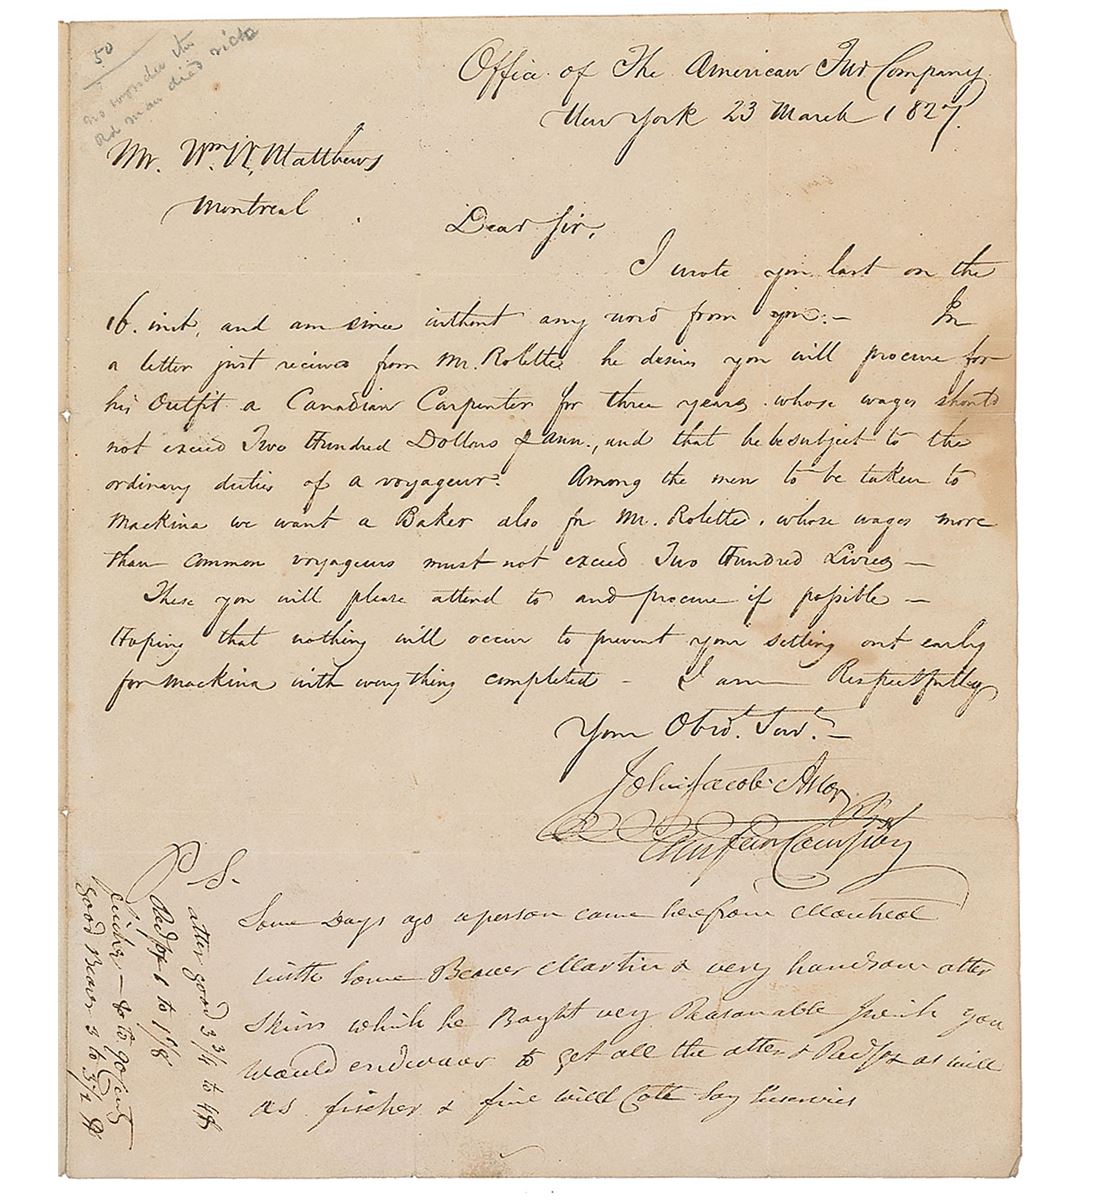 50
no wonder the
old man died rich
Office of The American Fur Company
New York 23 March 1827.
Mr. Wm. W. Matthews
Montreal
Dear Sir,
I wrote you last on the
16. inst, and am since without any word from you. — In
a letter just recived from Mr. Rolette he desires you will procure for
his Outfit a Canadian Carpenter for three years whose wages should
not exceed Two Hundred Dollars p Ann., and that he be subject to the
ordinary duties of a voyageur. Among the men to be taken to
Mackina we want a Baker also for Mr. Rolette, whose wages more
than common voyageurs must not exceed Two Hundred Livres —
These you will please attend to and procure if possible —
Hoping that nothing will occur to prevent your setting out early
for Mackina with every thing completed — I am Respectfully
Your Obed. Servt. —
John Jacob Astor
Am fur Company
P S.
Some Days ago a person came here from Montreal
with Some Beaver Martin & very handsom otter
Skins which he Baght very Reasonable I wish you
would endevaer to get all the otter & Red fox as will
as fischer & fine wild Catt say
otter good 3 3/4 to 4$
Red fox 1 to 1 1/8
fischer — to 90 cents
good Beaver 3 to 3 1/2 $